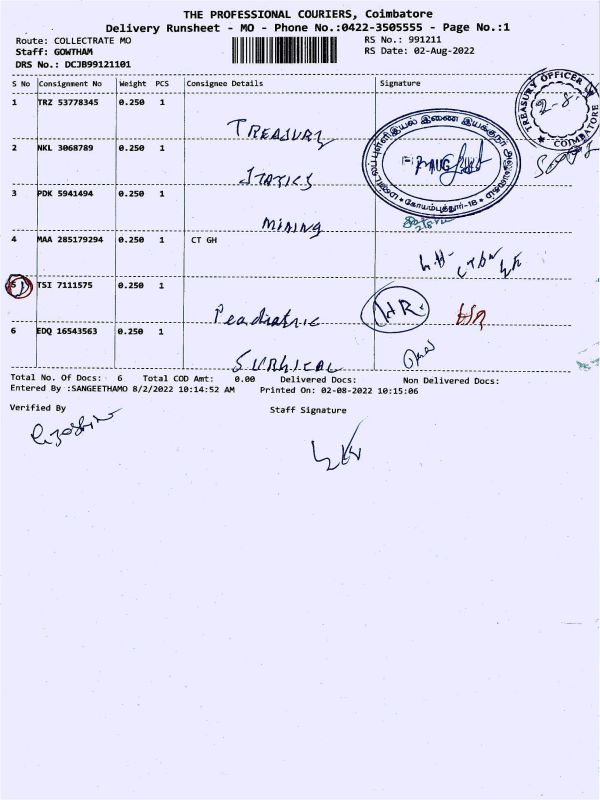 THE PROFESSIONAL COURIERS, Coimbatore
Delivery Runsheet - MO - Phone No.:0422-3505555 - Page No.:1
Route: COLLECTRATE MO
RS No.: 991211
Staff: GOWTHAM
RS Date: 02-Aug-2022
DRS No.: DCJB99121101
S No Consignment No Weight PCS Consignee Details Signature
1 TRZ 53778345 0.250 1
TREASURY
TREASURY OFFICER
COIMBATORE
2-8
மண்டலப் புள்ளியியல் இணை இயக்குநர் அலுவலகம்
கோயம்புத்தூர்-18
AUG
2 NKL 3068789 0.250 1
STATICS
3 PDK 5941494 0.250 1
MINING
4 MAA 285179294 0.250 1 CT GH
5 TSI 7111575 0.250 1
Peadiatric
HR.
6 EDQ 16543563 0.250 1
SURGICAL
Total No. Of Docs: 6 Total COD Amt: 0.00 Delivered Docs: Non Delivered Docs:
Entered By :SANGEETHAMO 8/2/2022 10:14:52 AM Printed On: 02-08-2022 10:15:06
Verified By
Staff Signature